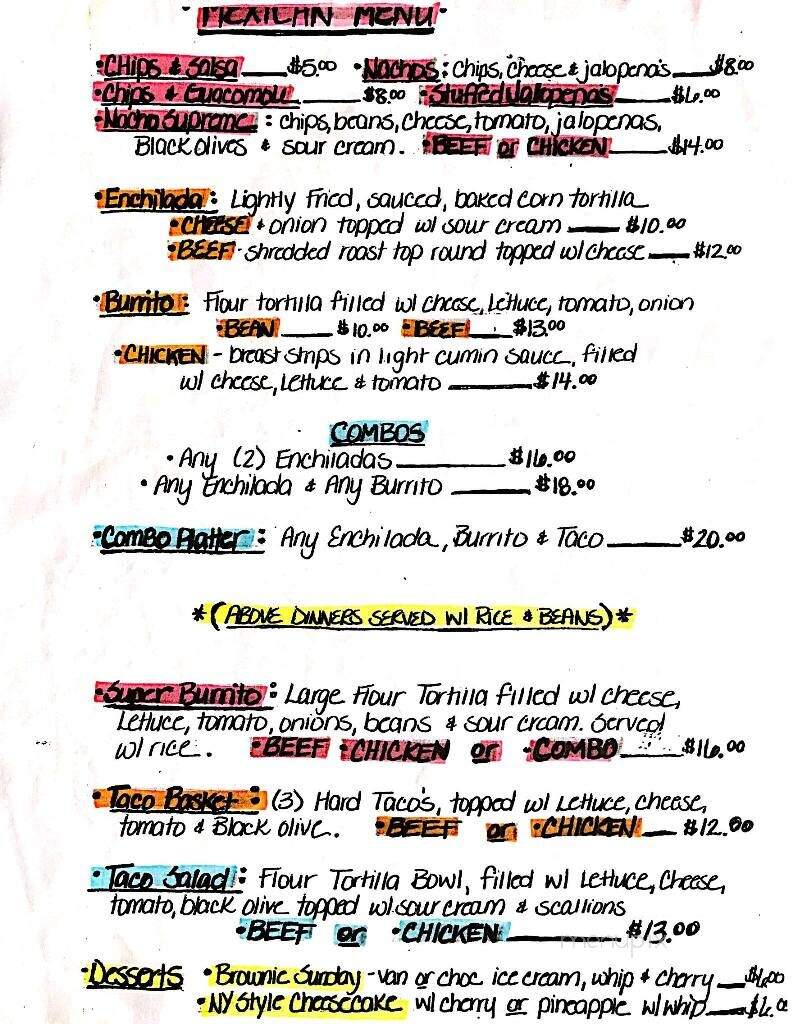 MEXICAN MENU
• CHIPS & Salsa $5.00 • Nachos: chips, cheese & jalopeno's $8.00
• Chips & Guacomole $8.00 • Stuffed Jalopenos $6.00
• Nacho Supreme: chips, beans, cheese, tomato, jalopenas,
Black olives & sour cream. • BEEF or CHICKEN $14.00
• Enchilada: Lightly Fried, sauced, baked corn tortilla
• CHEESE & onion topped w/ sour cream $10.00
• BEEF - shredded roast top round topped w/ cheese $12.00
• Burrito: Flour tortilla filled w/ cheese, Lettuce, tomato, onion
• BEAN $10.00 • BEEF $13.00
• CHICKEN - breast strips in light cumin sauce, filled
w/ cheese, Lettuce & tomato $14.00
COMBOS
• Any (2) Enchiladas $16.00
• Any Enchilada & Any Burrito $18.00
• Combo Platter: Any Enchilada, Burrito & Taco $20.00
*(ABOVE DINNERS SERVED W/ RICE & BEANS)*
• Super Burrito: Large Flour Tortilla filled w/ cheese,
Lettuce, tomato, onions, beans & sour cream. Served
w/ rice. • BEEF • CHICKEN or • COMBO $16.00
• Taco Basket: (3) Hard Taco's, topped w/ Lettuce, cheese,
tomato & Black olive. • BEEF or • CHICKEN $12.00
• Taco Salad: Flour Tortilla Bowl, filled w/ Lettuce, Cheese,
tomato, black olive topped w/ sour cream & scallions
• BEEF or • CHICKEN $13.00
• Desserts • Brownie Sunday - van or choc ice cream, whip & cherry $6.00
• NY Style Cheesecake w/ cherry or pineapple w/ whip